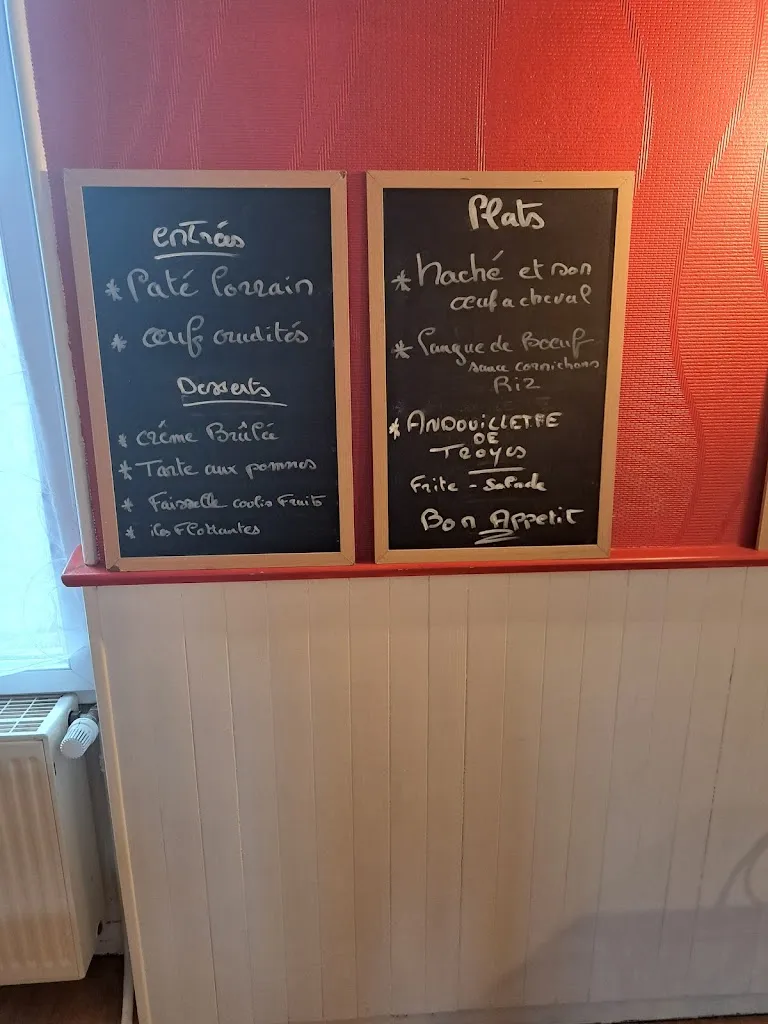 entrées
* Paté lorrain
* œuf crudités
Desserts
* créme Brûlée
* Tarte aux pommes
* Faisselle coulis Fruits
* iles Flottantes
Plats
* haché et son
œuf a cheval
* langue de Boeuf
sauce cornichons
Riz
* ANDOUILLETTE
DE
Troyes
Frite - Salade
Bon Appetit